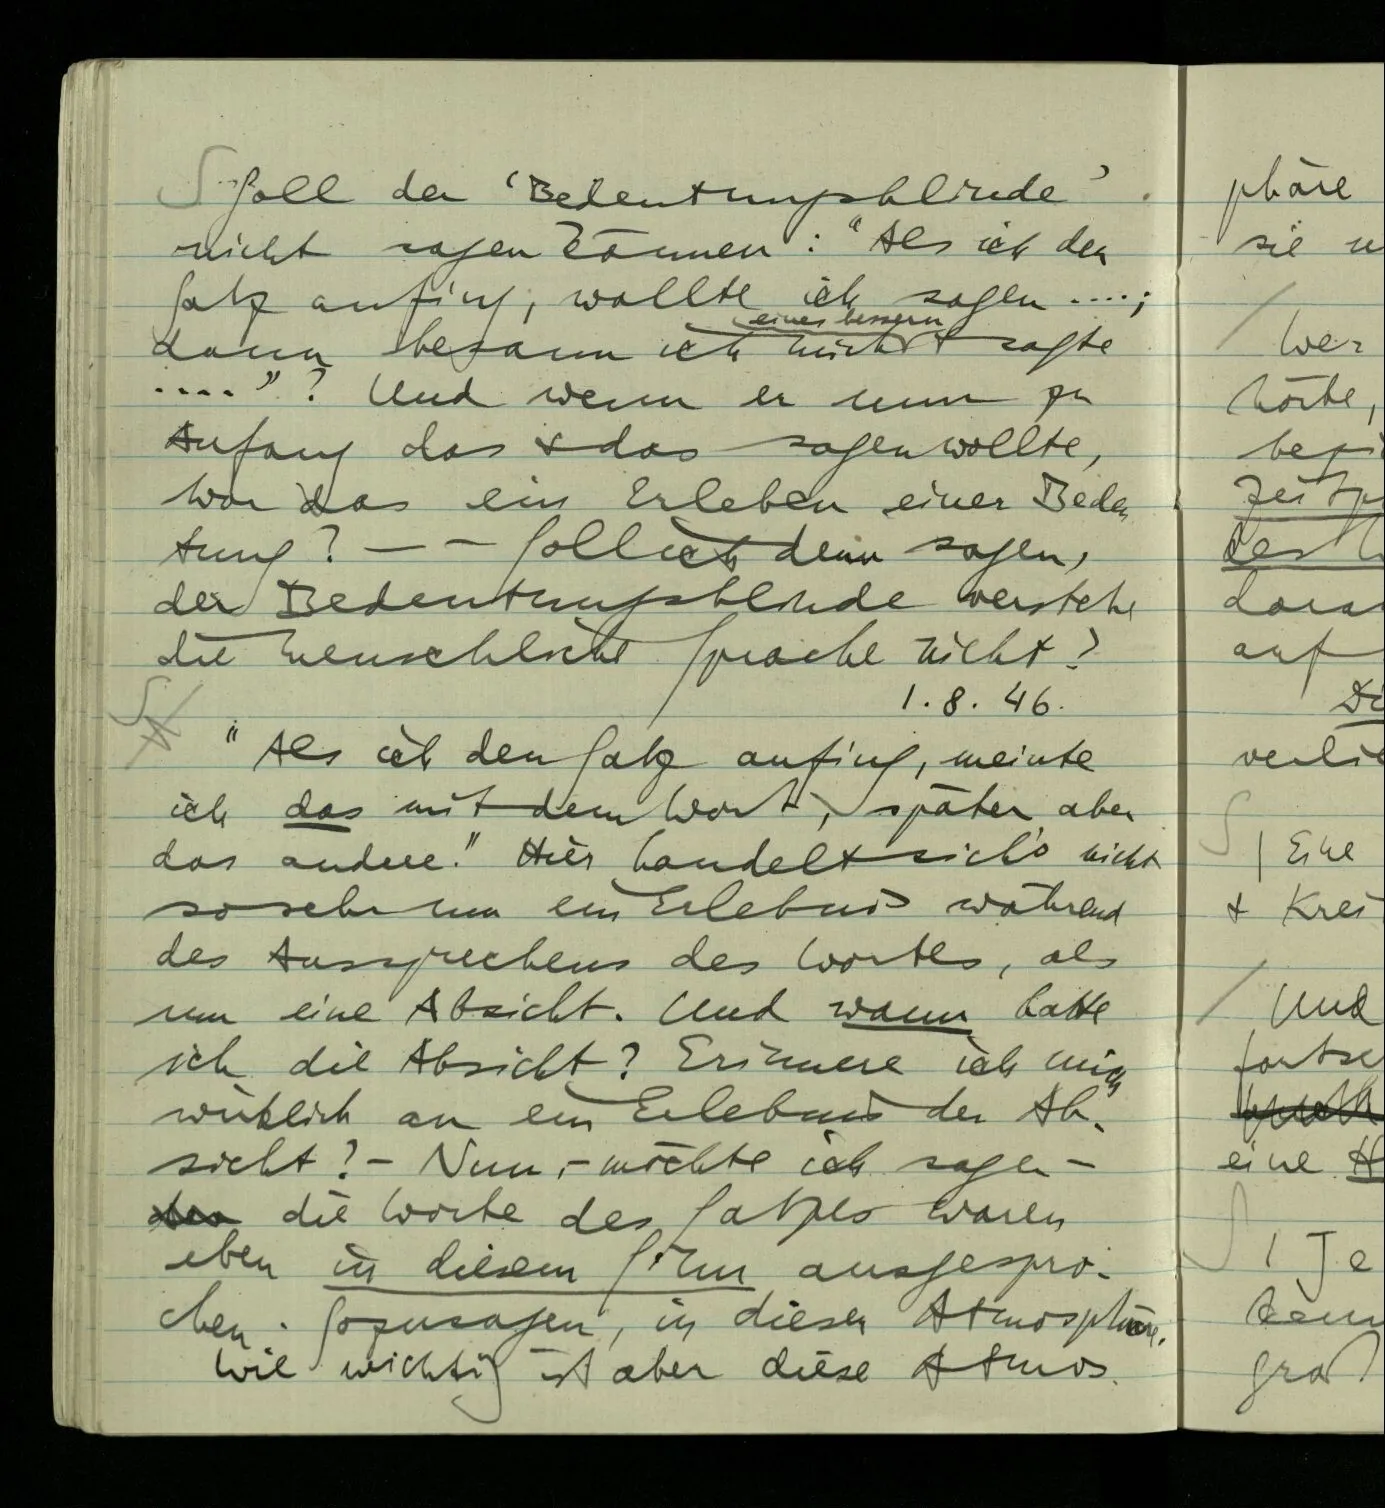 Soll der 'Bedeutungsblinde'
nicht sagen können: "Als ich den
Satz anfing, wollte ich sagen ....;
eines bessern
dann besann ich mich & sagte
...."? Und wenn er nun zu
Anfang das & das sagen wollte,
war das ein Erleben einer Bedeu
tung? — – Soll ich denn sagen,
der Bedeutungsblinde verstehe
die menschliche Sprache nicht?
1.8.46.
"Als ich den Satz anfing, meinte
ich das mit dem Wort, später aber
das andere." Hier handelt sich's nicht
so sehr um ein Erlebnis während
des Aussprechens des Wortes, als
um eine Absicht. Und wann hatte
ich die Absicht? Erinnere ich mich
wirklich an ein Erlebnis der Ab-
sicht? – Nun, – möchte ich sagen –
die Worte des Satzes waren
eben in diesem Sinn ausgespro-
chen. Sozusagen, in dieser Atmosphäre.
Wie wichtig ist aber diese Atmos-
phäre
sie
Wer
hörte,
auf
Eine
&
Und
eine
Je